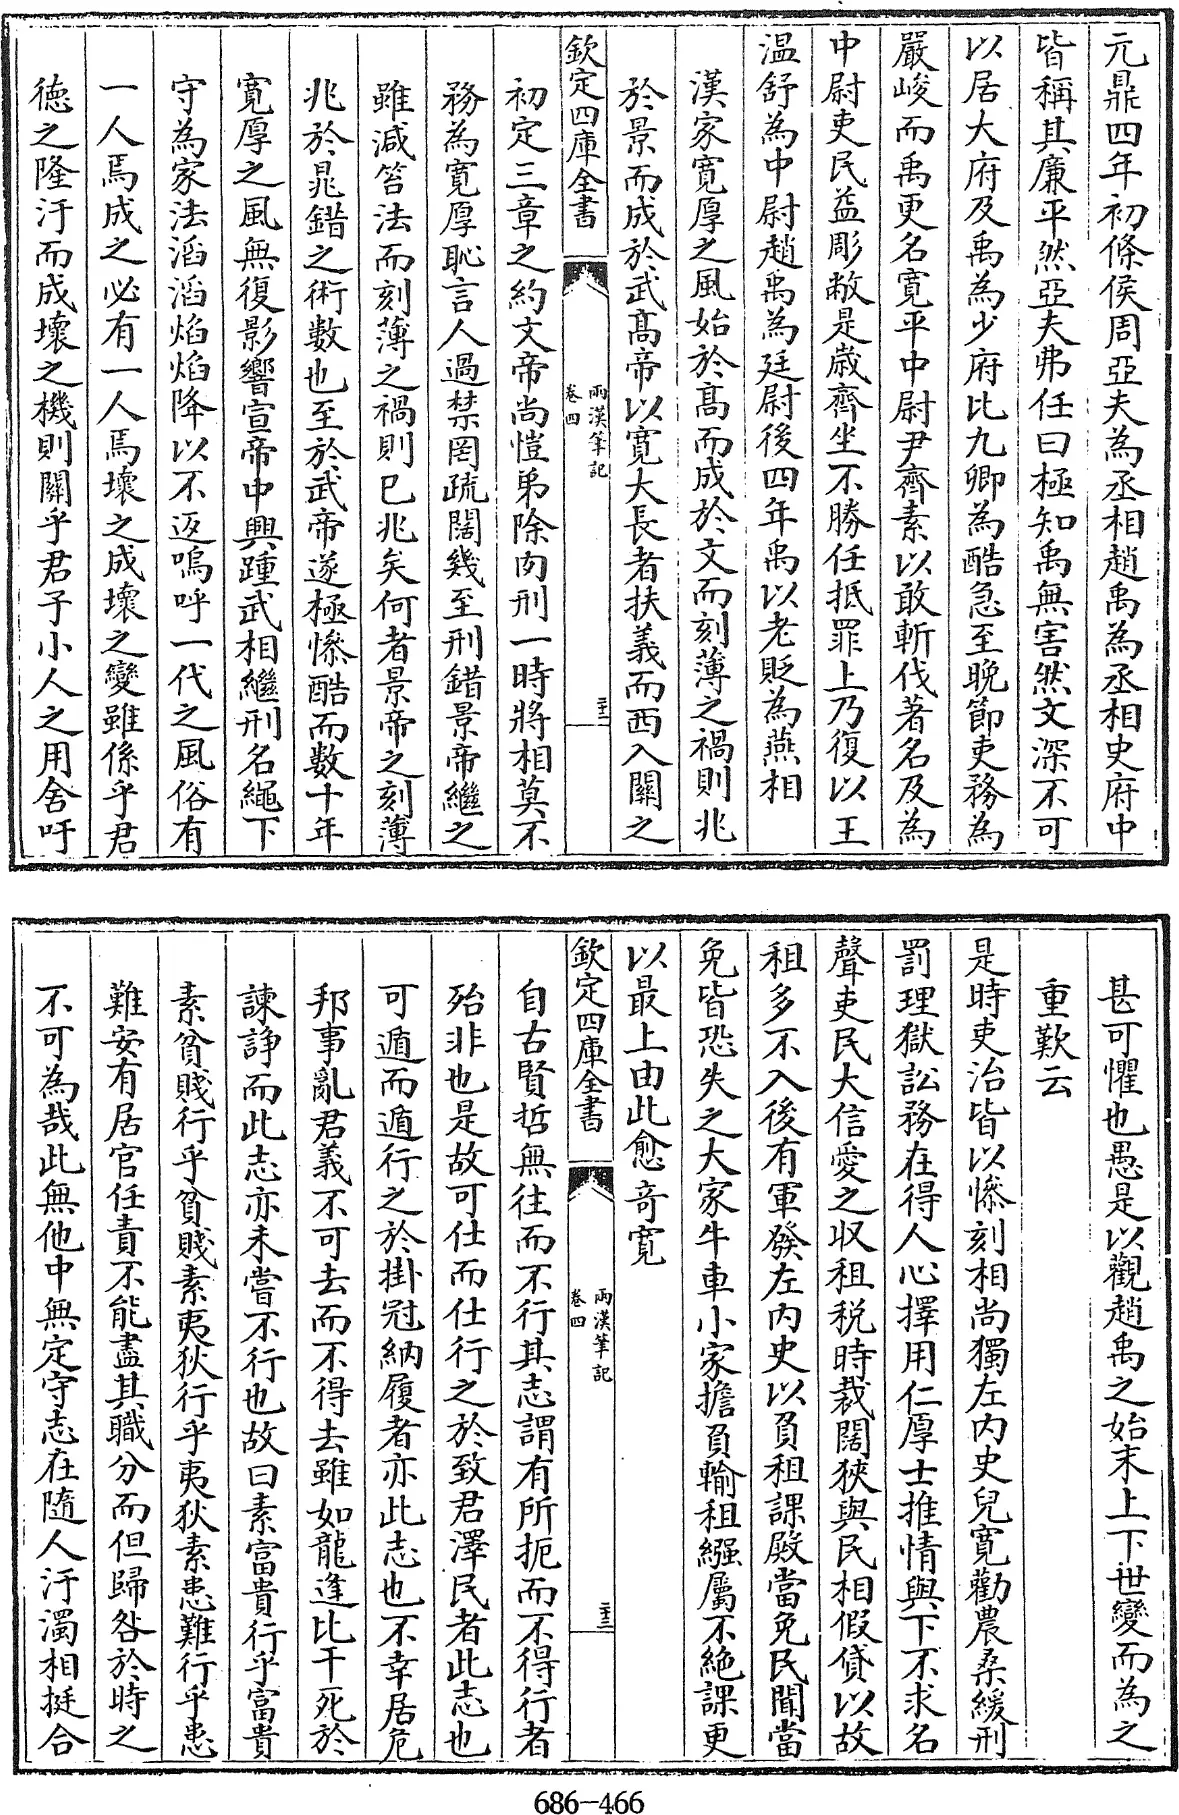 元鼎四年初條侯周亞夫為丞相趙禹為丞相史府中
皆稱其廉平然亞夫弗任曰極知禹無害然文深不可
以居大府及禹為少府比九卿為酷急至晚節吏務為
嚴峻而禹更名寛平中尉尹齊素以敢斬伐著名及為
中尉吏民益彫敝是歳齊坐不勝任抵罪上乃復以王
温舒為中尉趙禹為廷尉後四年禹以老貶為燕相
漢家寛厚之風始於髙而成於文而刻薄之禍則兆
於景而成於武髙帝以寛大長者扶義而西入關之
欽定四庫全書
兩漢筆記
卷四
二十二
初定三章之約文帝尚愷弟除肉刑一時將相莫不
務為寛厚恥言人過禁罔疏闊幾至刑錯景帝繼之
雖減笞法而刻薄之禍則已兆矣何者景帝之刻薄
兆於晁錯之術數也至於武帝遂極慘酷而數十年
寛厚之風無復影響宣帝中興踵武相繼刑名繩下
守為家法滔滔焰焰降以不返嗚呼一代之風俗有
一人焉成之必有一人焉壞之成壞之變雖係乎君
徳之隆汙而成壞之機則關乎君子小人之用舍吁
甚可懼也愚是以觀趙禹之始末上下世變而為之
重歎云
是時吏治皆以慘刻相尚獨左内史兒寛勸農桑緩刑
罰理獄訟務在得人心擇用仁厚士推情與下不求名
聲吏民大信愛之收租税時裁闊狹與民相假貸以故
租多不入後有軍發左内史以負租課殿當免民聞當
免皆恐失之大家牛車小家擔負輸租繦屬不絶課更
以最上由此愈竒寛
欽定四庫全書
兩漢筆記
卷四
二十三
自古賢哲無往而不行其志謂有所扼而不得行者
殆非也是故可仕而仕行之於致君澤民者此志也
可遁而遁行之於掛冠納履者亦此志也不幸居危
邦事亂君義不可去而不得去雖如龍逢比干死於
諫諍而此志亦未嘗不行也故曰素富貴行乎富貴
素貧賤行乎貧賤素夷狄行乎夷狄素患難行乎患
難安有居官任責不能盡其職分而但歸咎於時之
不可為哉此無他中無定守志在隨人汙濁相挻合
686-466